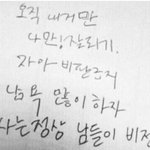 오직 내거만
나만! 잘되기.
자아 비판금지
남 욕 많이 하자
정상 남들이 비정